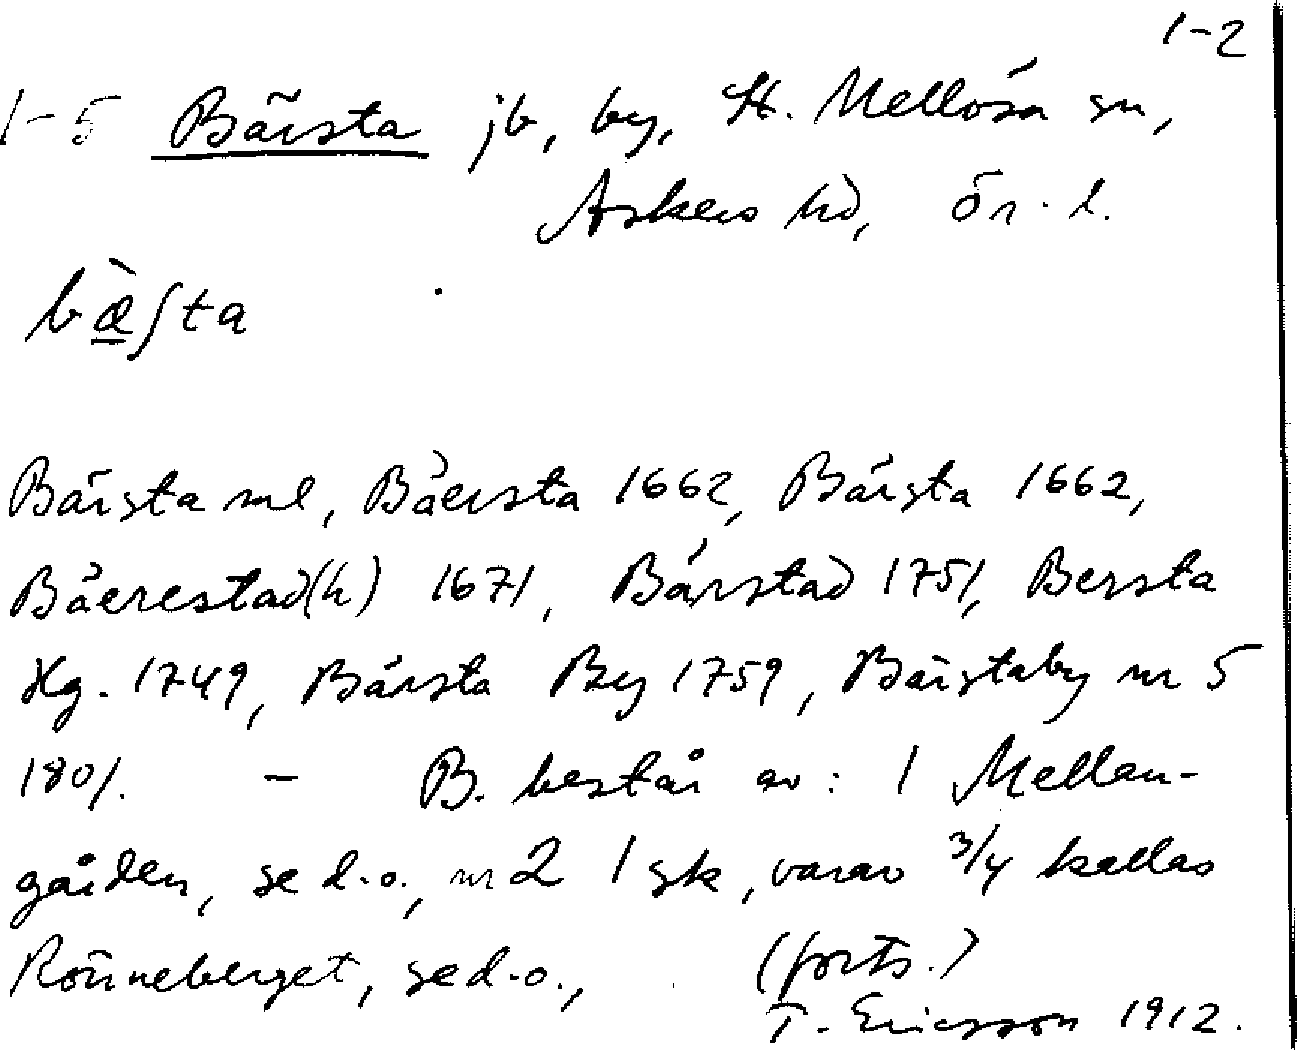 1-2
1-5 Bärsta jb, by, St. Mellösa sn,
Askers hd, Ör. l.
bæ̀ʃta
Bärsta ml, Båersta 1662, Bärsta 1662,
Båerestad(h) 1671, Bárstad 1751, Bersta
Hg. 1749, Bársta By 1759, Bärstaby nr 5
1801. – B. består av: 1 Mellan-
gården, se d.o., nr 2 1 sk, varav 3/4 kallas
Rönneberget, se d.o., (forts.)
T. Ericsson 1912.